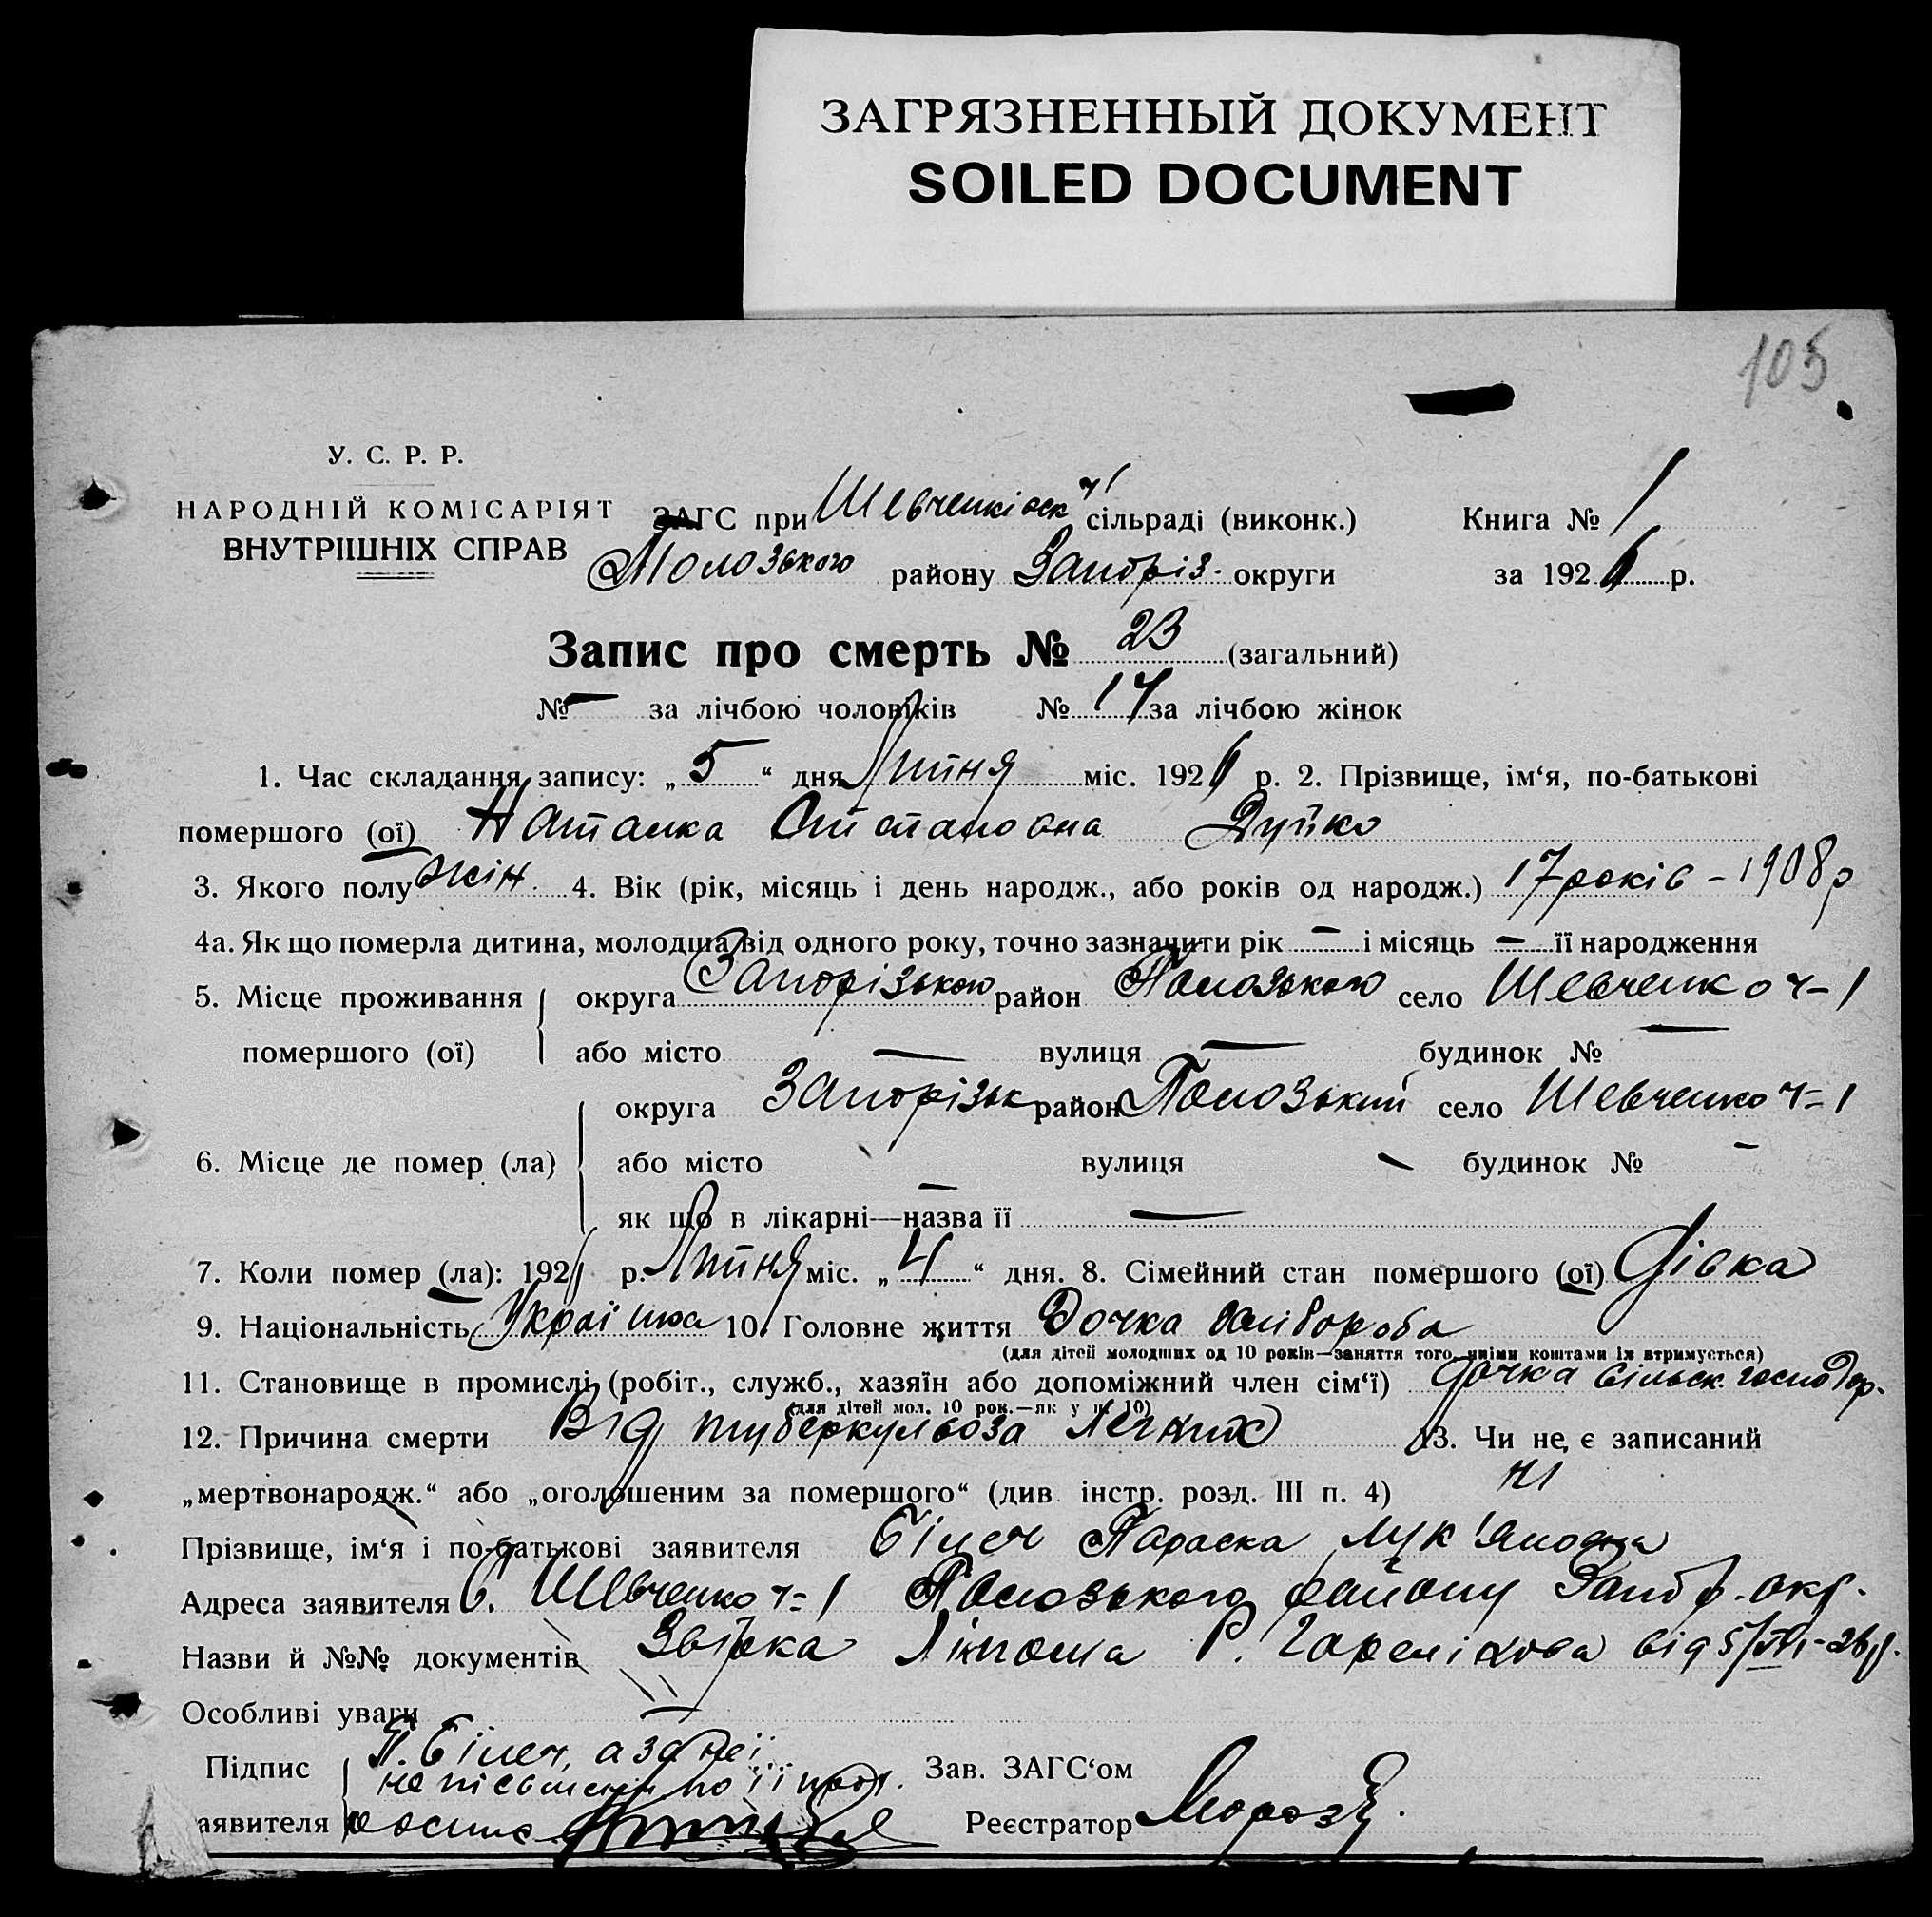 ЗАГРЯЗНЕННЫЙ ДОКУМЕНТ
SOILED DOCUMENT
105
У. С. Р. Р.
НАРОДНІЙ КОМІСАРІЯТ
ВНУТРІШНІХ СПРАВ
ЗАГС при Шевченківськ ч1 сільраді (виконк.) Книга № 1
Пологського району Запоріз. округи за 1926 р.
Запис про смерть № 23 (загальний)
№ — за лічбою чоловіків № 14 за лічбою жінок
1. Час складання запису: „5“ дня Липня міс. 1926 р. 2. Прізвище, ім‘я, по-батькові
помершого (ої) Наталка Степановна Дуйко
3. Якого полу жін. 4. Вік (рік, місяць і день народж., або років од народж.) 17 років – 1908 р
4а. Як що померла дитина, молодша від одного року, точно зазначити рік — і місяць — її народження
5. Місце проживання округа Запорізького район Пологського село Шевченко ч-1
помершого (ої) або місто — вулиця — будинок № —
округа Запорізьк район Пологський село Шевченко ч-1
6. Місце де помер (ла) або місто вулиця – будинок № –
як що в лікарні—назва її —
7. Коли помер (ла): 1926 р. Липня міс. „4“ дня. 8. Сімейний стан помершого (ої) Дівка
9. Національність Українка 10. Головне життя Дочка хлібороба
(для дітей молодших од 10 років—заняття того, чиїми коштами їх втримується)
11. Становище в промислі (робіт., служб., хазяїн або допоміжний член сім‘ї) Дочка сільск. господар.
(для дітей мол. 10 рок.—як у п. 10)
12. Причина смерти Від туберкульоза легких 13. Чи не є записаний
„мертвонародж.“ або „оголошеним за помершого“ (див. інстр. розд. III п. 4) ні
Прізвище, ім‘я і по-батькові заявителя Білеч Параска Лук'яновна
Адреса заявителя С. Шевченко ч-1 Пологського району Запор. окр.
Назви й №№ документів Звістка Р. від 5/VII-26 р.
Особливі уваги —
Підпис П. Білеч, а за неї
неписьменну по її прозб. Зав. ЗАГС‘ом
аявителя Реєстратор Мороз